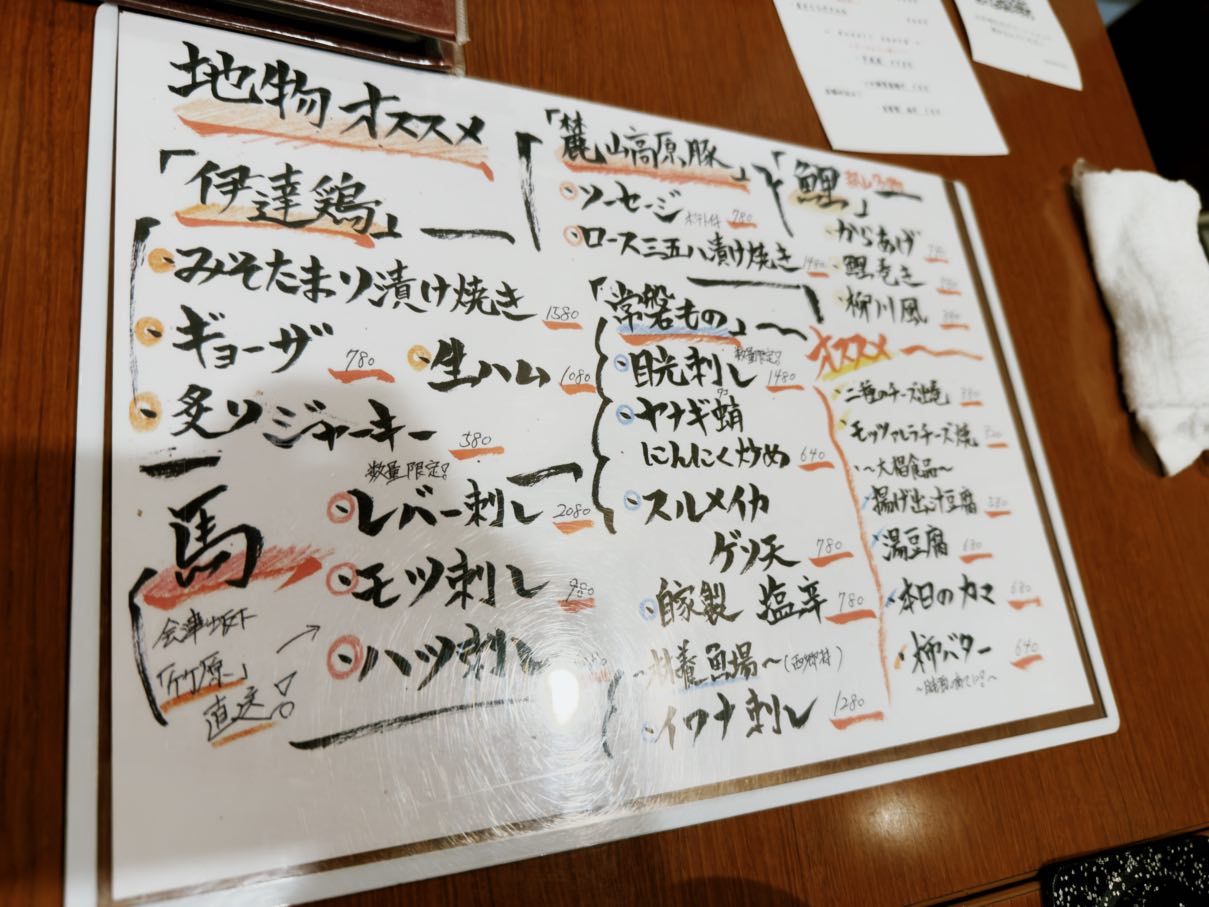 地物オススメ
「伊達鶏」
みそたまり漬け焼き 1580
ギョーザ 780
生ハム 1080
炙りジャーキー 580
馬
会津坂下
「竹原」
直送!
数量限定!
レバー刺し 2080
モツ刺し 980
ハツ刺し
「麓山高原豚」
ソーセージ ポテト付 780
ロース三五八漬け焼き 1480
「常磐もの」
数量限定!
目光刺し 1480
ヤナギ蛸
にんにく炒め 640
スルメイカ
ゲソ天 780
自家製 塩辛 780
~林養魚場~(西郷村)
イワナ刺し 1280
「鯉」
からあげ
鯉巻き
柳川風
オススメ
二種のチーズ
モッツァレラチーズ焼
~大椙食品~
揚げ出汁豆腐
湯豆腐 630
本日のカマ 680
柳バター 640